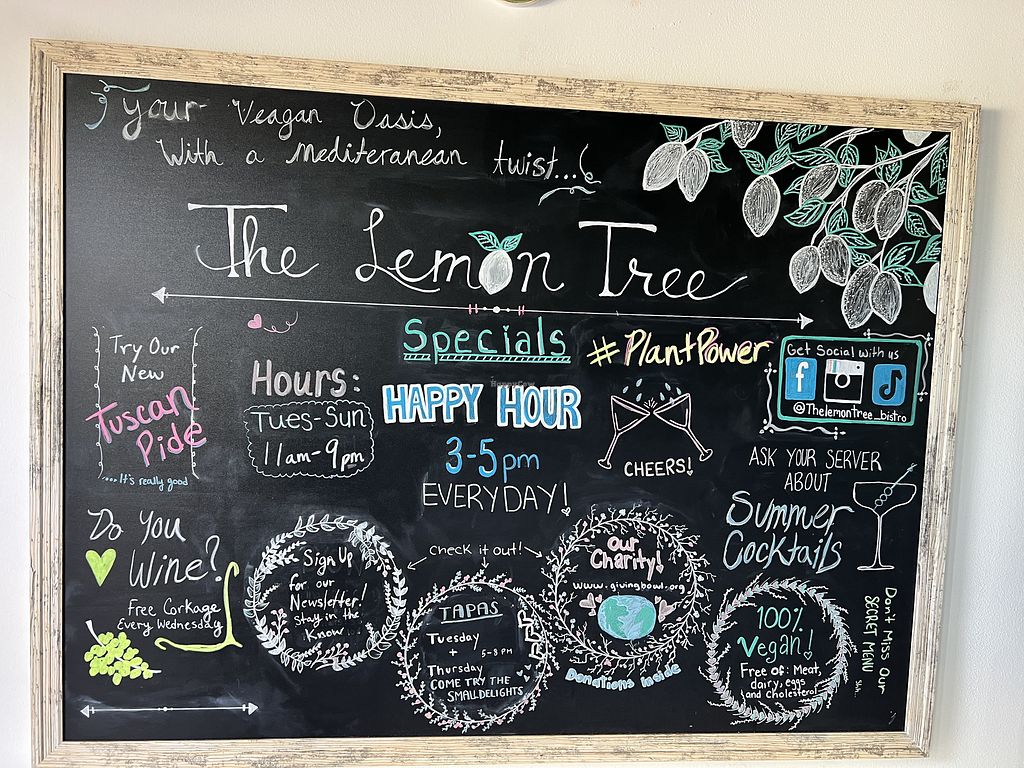 your Veagan Oasis,
With a Mediteranean twist...
The Lemon Tree
Try Our
New
Tuscan
Pide
....It's really good
Hours:
Tues-Sun
11am-9pm
Specials
HAPPY HOUR
3-5pm
EVERYDAY!
#PlantPower
CHEERS!
Get Social with us
f
@ThelemonTree_bistro
ASK YOUR SERVER
ABOUT
Summer
Cocktails
Do You
Wine?
Free Corkage
Every Wednesday
Sign Up
for our
Newsletter!
stay in the
Know...
Check it out!
TAPAS
Tuesday
+ 5-8 PM
Thursday
COME TRY THE
SMALL DELIGHTS
Our
Charity!
www.givingbowl.org
Donations Inside
100%
Vegan!
Free of: Meat,
dairy, eggs
and Cholesterol
Don't Miss Our
SECRET MENU